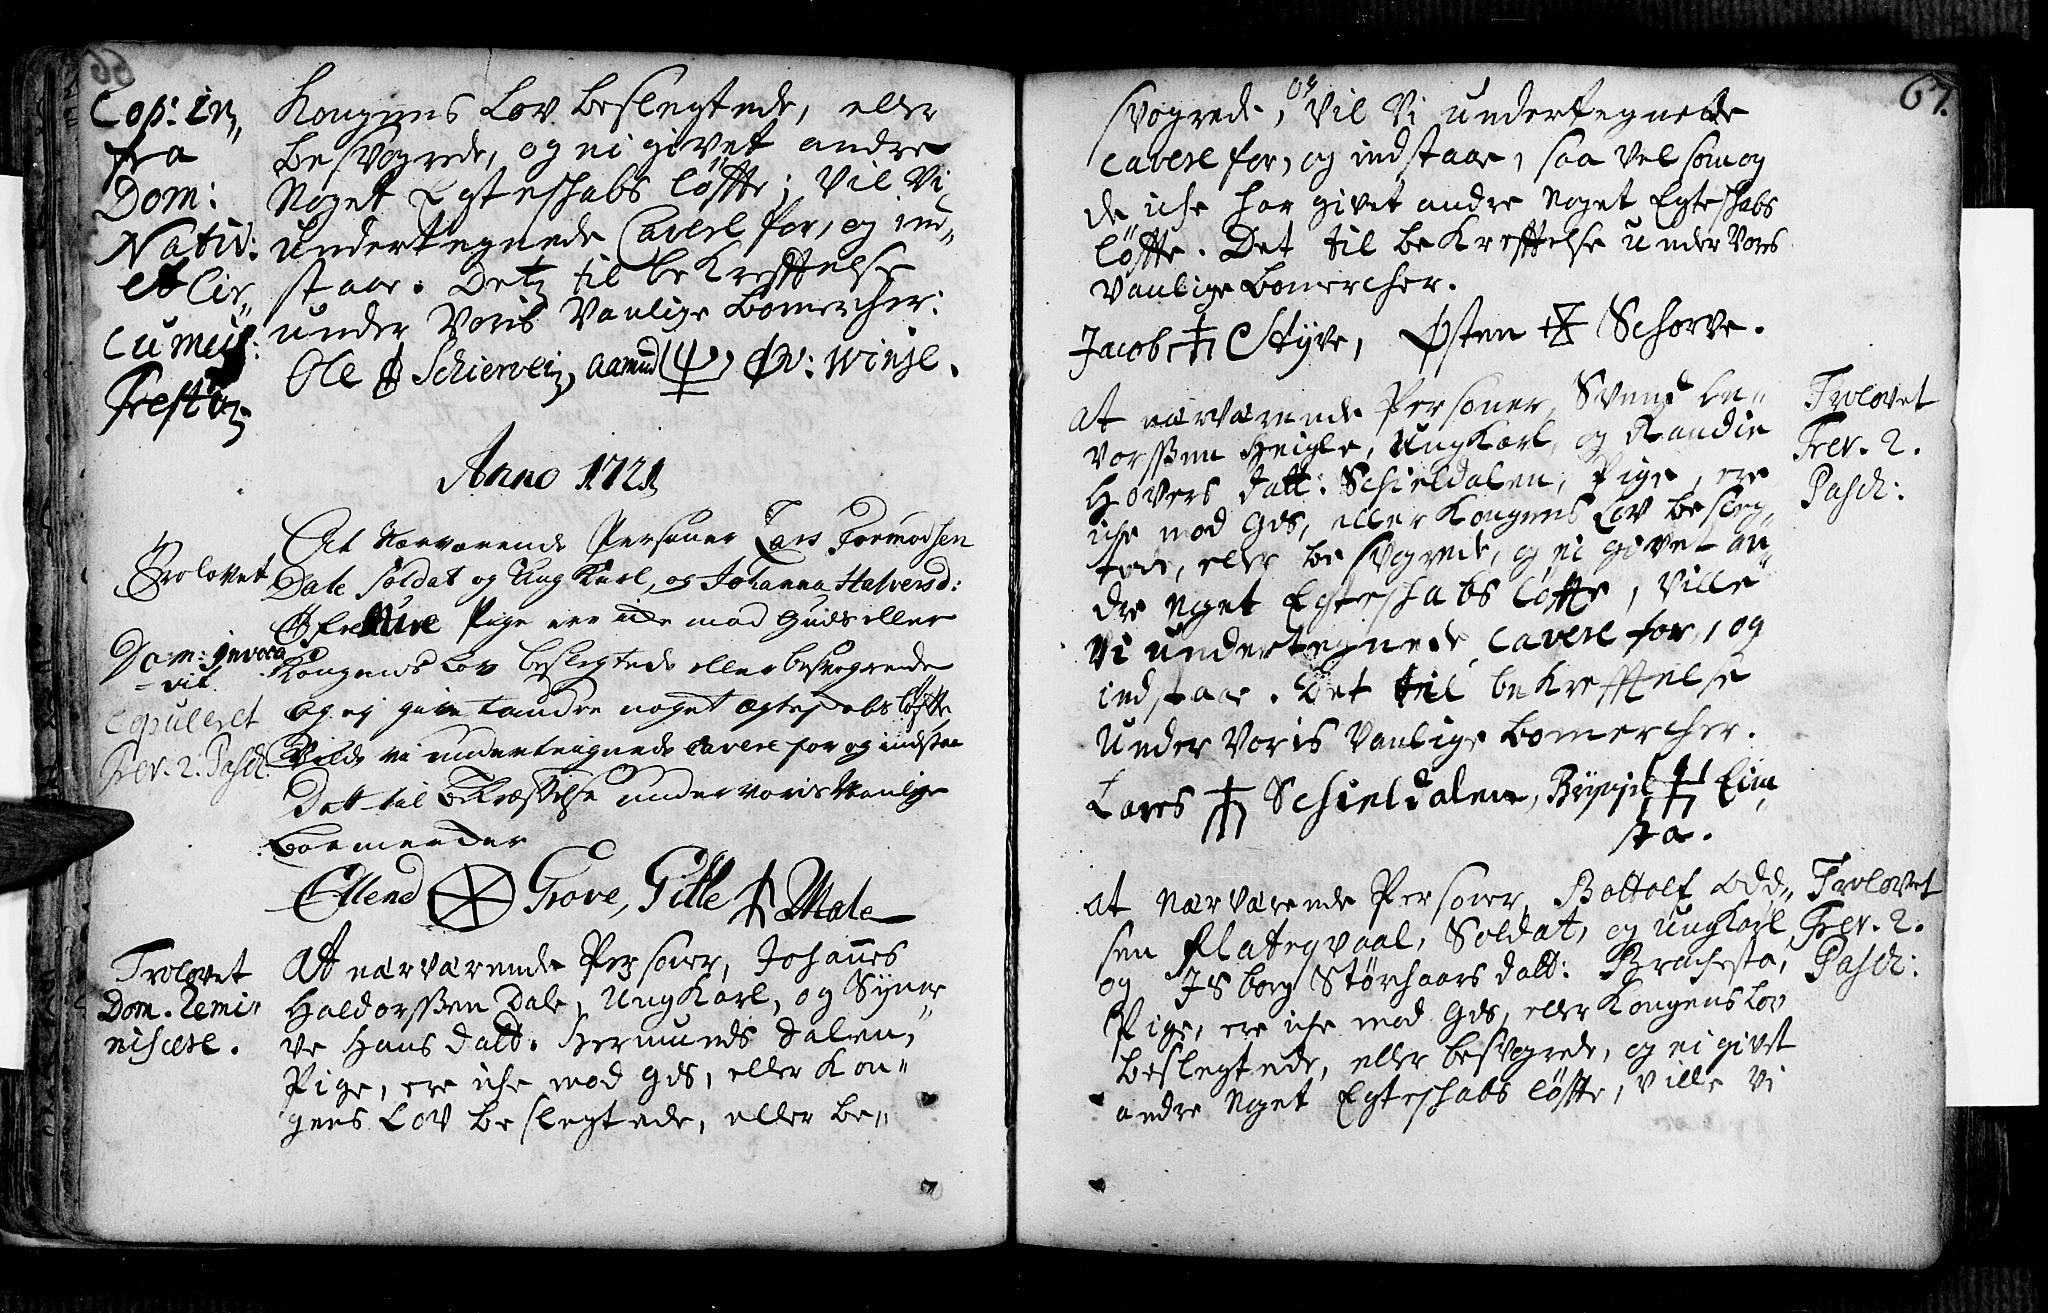 Cop: in„
fra
Dom:
Nativ:
et Cir„
cumcis:
Kongens Lov beslegtede, eller
besvogrede, og ei givet andre
Noget Egteskabs løffte; Vil Vi
Undertegnede Cavere for, og ind„
staar. Dets til bekrefftelse
under Voris Vanlige Bomercher:
Ole Schiervein, Aamund Winje.
Anno 1721
Trolovet
Dom: invoca
vit.
Copuleret
Fer. 2. Pasch:
At Nærværende Persohner Lars Tormodsen
Dale Soldat og Ung Karl, og Johanna Halversd:
Pige ere iche mod Guds eller
Kongens Lov beslegtede eller besvogrede
og ej givet andre noget ægteskabs løffte
Vilde vi underteignede Cavere for og indstaa
Dett til bekræfftelse under voris Vanlige
Boemercker
Ellend Grove, Gille Male
Trolovet
Dom. Remi„
niscere.
At nærværende Personer, Johannes
Haldorssen Dale, UngKarl, og Syne„
ve Hans datt. Hermunds dalen,
Pige, ere iche mod Gds, eller Kon„
gens Lov beslegtede, eller be„
67.
svogrede, Vil Vi undertegnede
Cavere for, og indstaar, saa vel som og
de iche har givet andre Noget Egteskabs
løffte. Det til bekrefftelse under Vores
Vanlige Bomercher.
Jacob Styve, Østen Schorve.
At nærværende Personer, Svend Le„
vorssen Heigle, UngKarl, og Randie
Hovers datt: Schieldalen, Pige, ere
iche mod Gds, eller Kongens Lov besleg„
tede, eller besvogrede, og ei givet an„
dre Noget Egteskabs løffte, Ville
Vi undertegnede Cavere for, og
indstaar. Det til bekrefftelse
Under Voris Vanlige Bomercher.
Lars Schieldalen, Brynjel Eim„
sta.
Trolovet
Fer. 2.
Pasch:
At Nærværende Personer, Bottolf Odd„
sen Flateqvaal, Soldat, og UngKarl
og Isborg Størchaars datt: Brachesta,
Pige, ere iche mod Gds, eller Kongens Lov
beslegtede, eller besvogrede, og ei givet
andre Noget Egteskabs løffte, Ville Vi
Trolovet
Fer. 2.
Pasch: